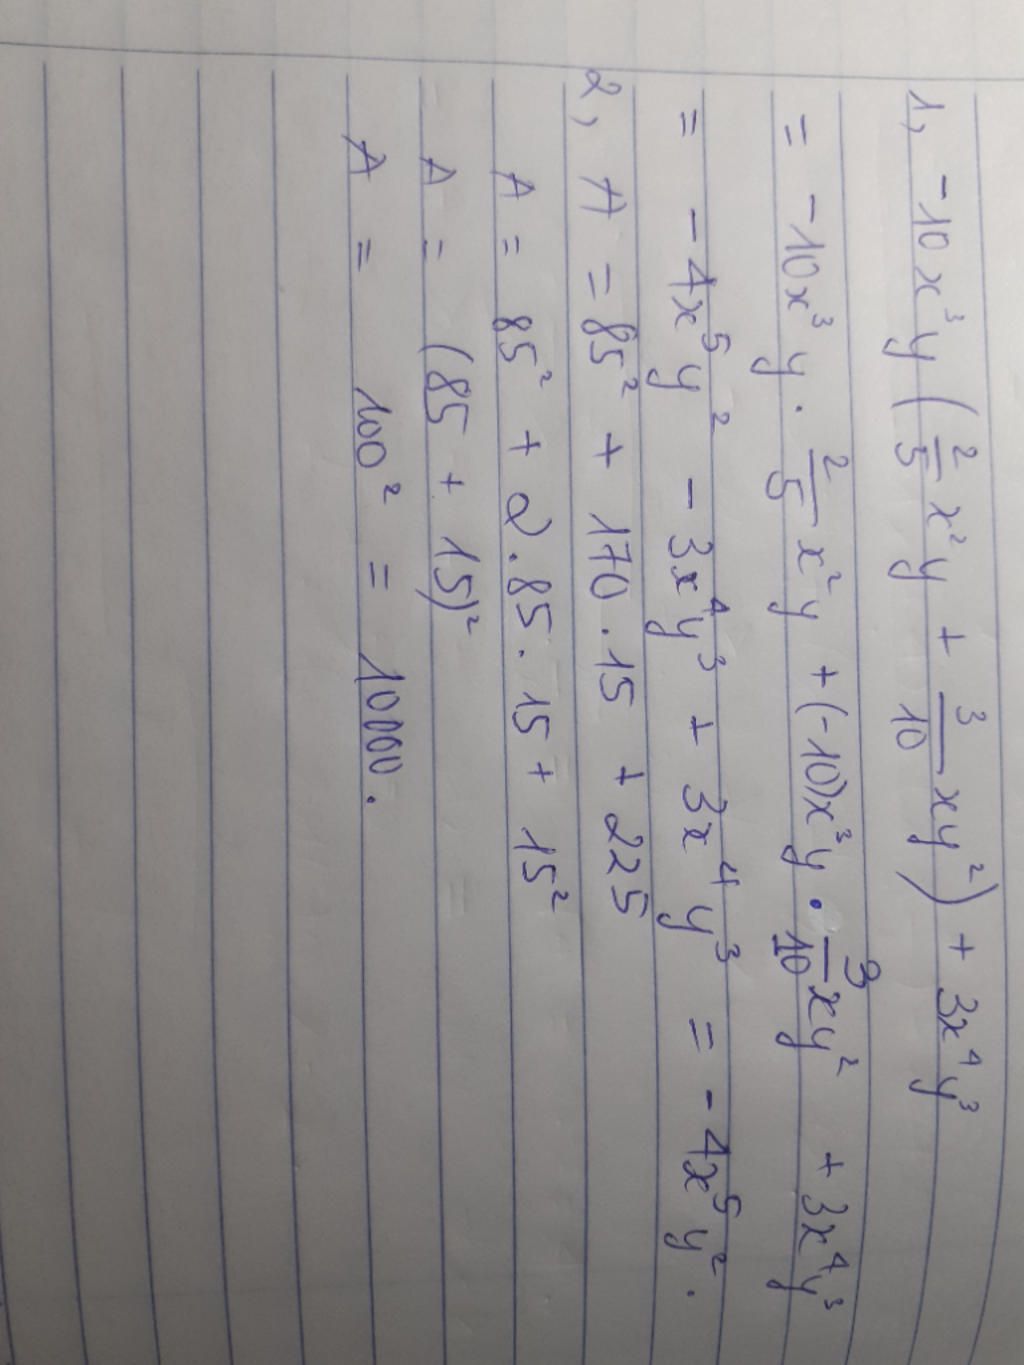 1, -10x³y (2/5 x²y + 3/10 xy²) + 3x⁴y³
= -10x³y . 2/5 x²y + (-10)x³y . 3/10 xy² + 3x⁴y³
= -4x⁵y² - 3x⁴y³ + 3x⁴y³ = -4x⁵y².
2, A = 85² + 170.15 + 225
A = 85² + 2.85.15 + 15²
A = (85 + 15)²
A = 100² = 10000.